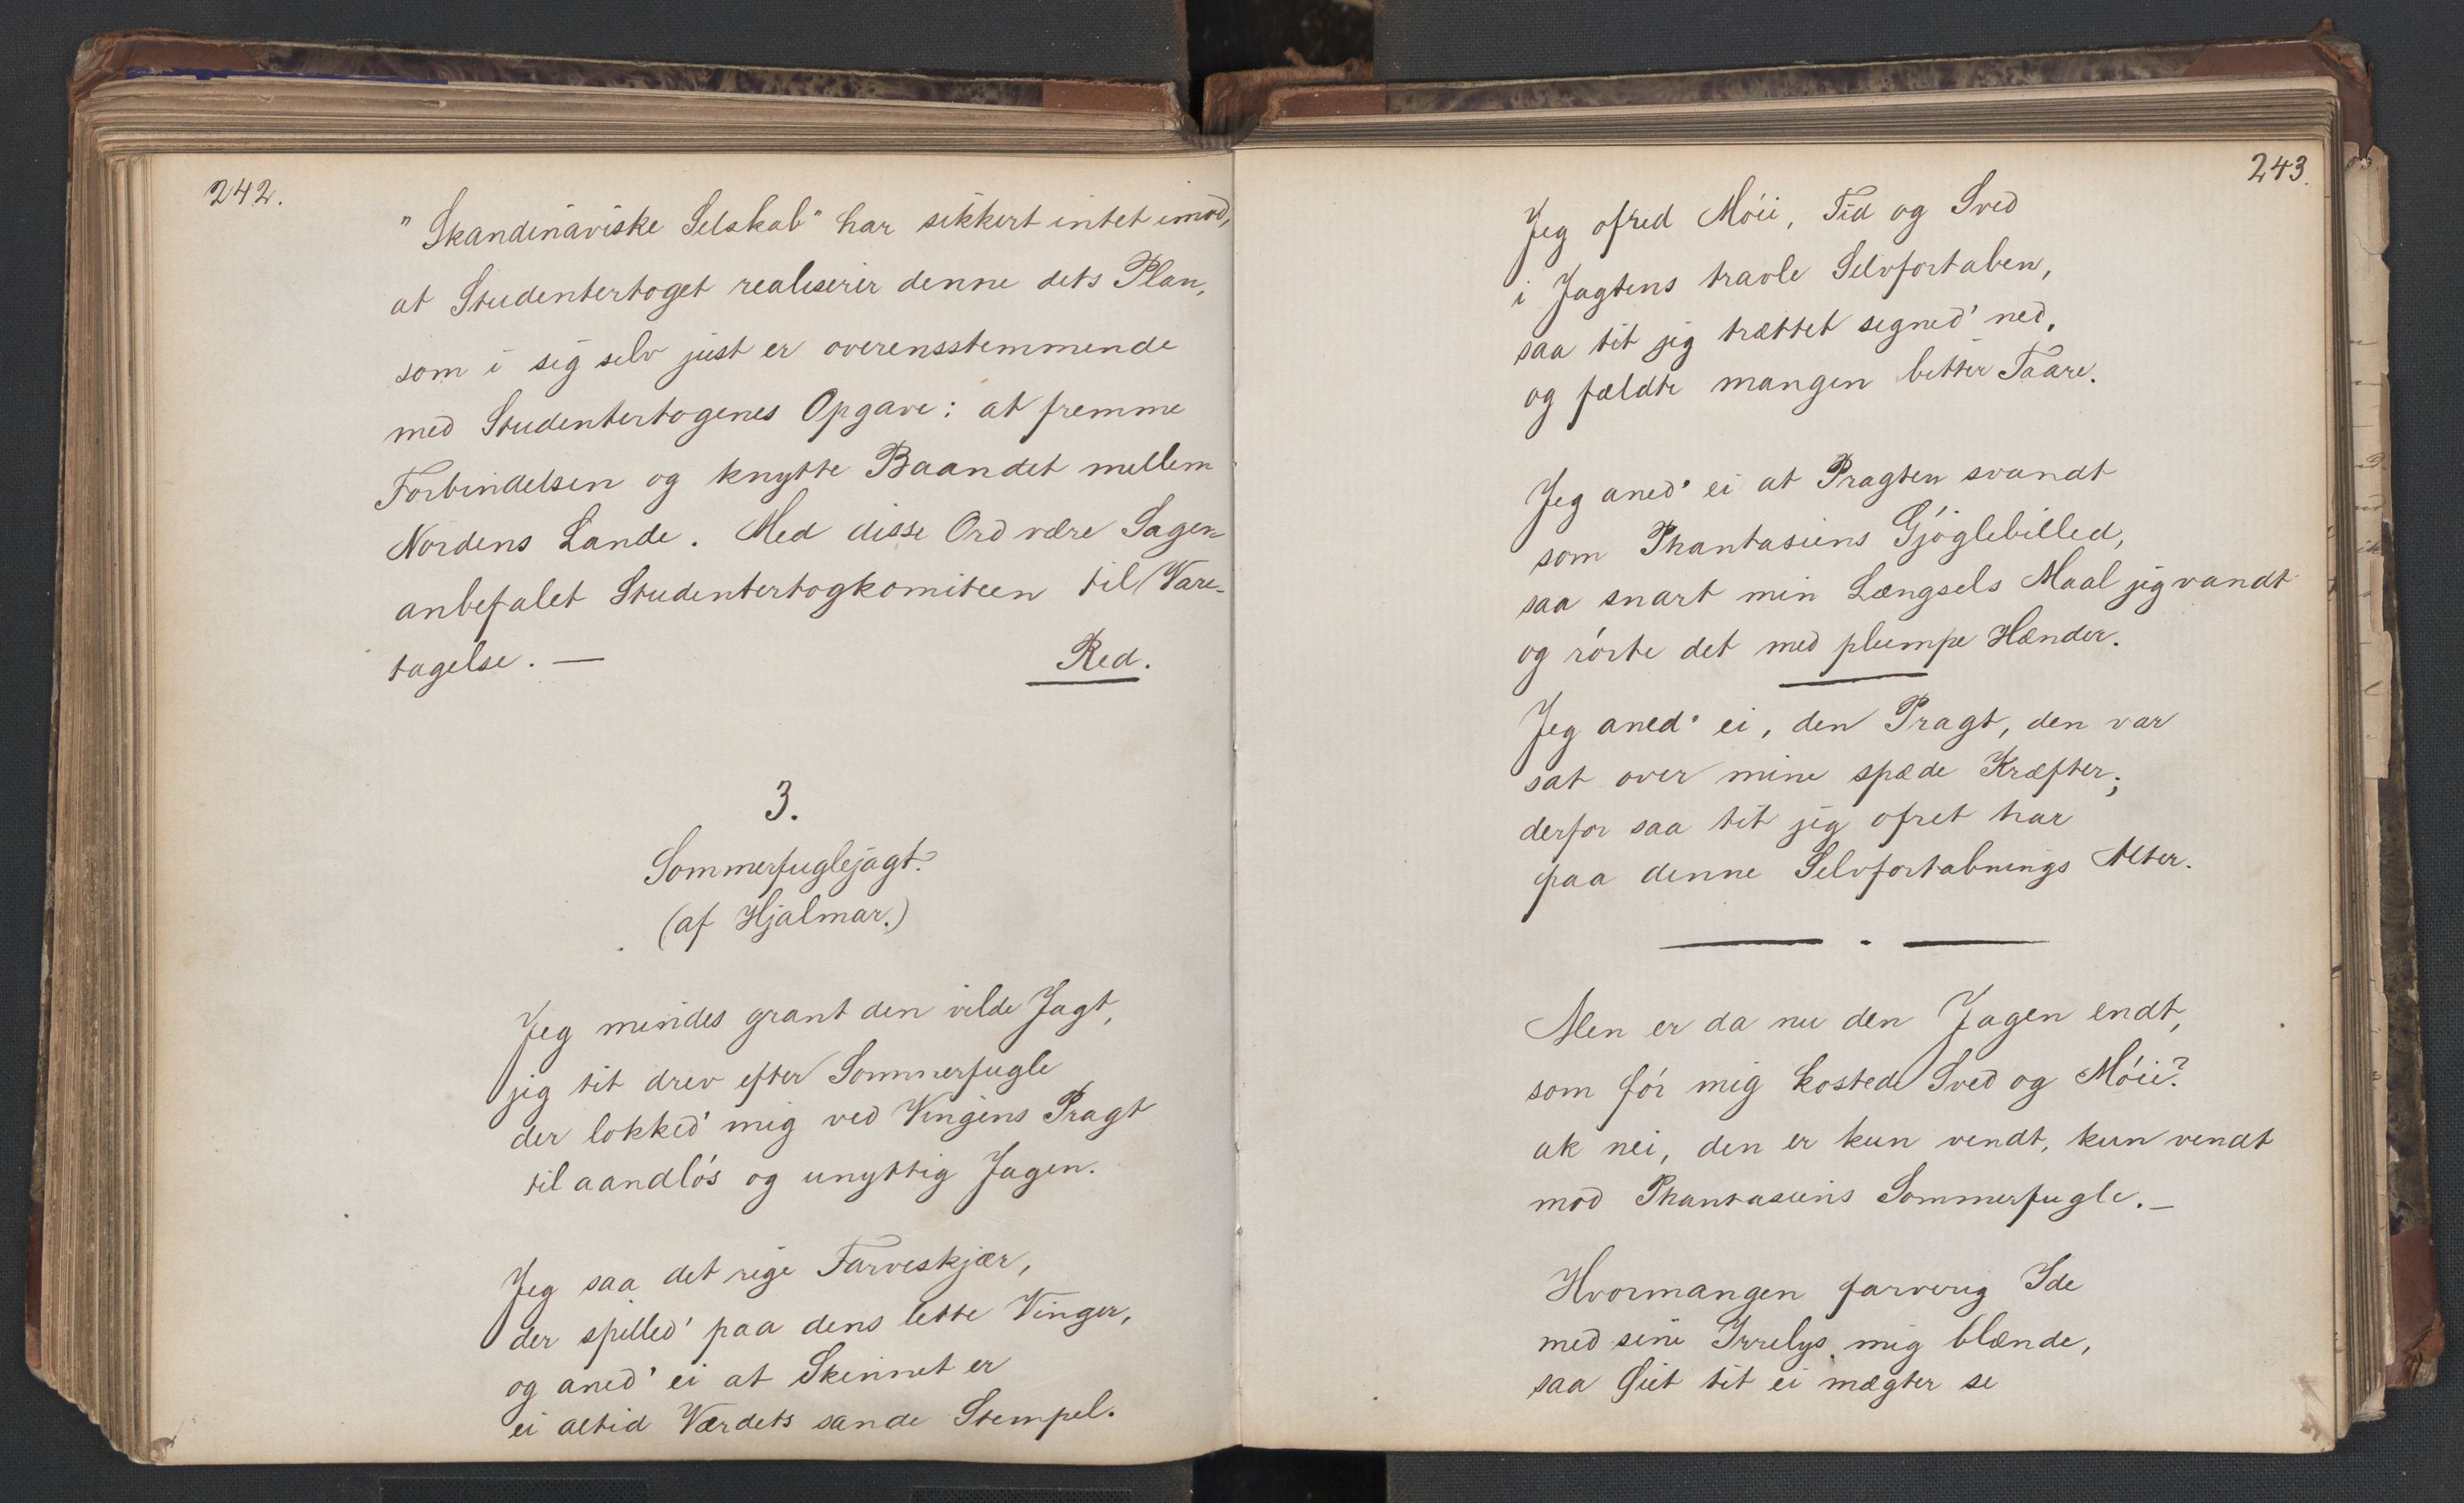 242.
"Skandinaviske Selskab" har sikkert intet imod,
at Studentertoget realiserer denne dets Plan,
som i sig selv just er overensstemmende
med Studentertogenes Opgave: at fremme
Forbindelsen og knytte Baandet mellem
Nordens Lande. Med disse Ord være Sagen
anbefalet Studentertogkomiteen til Vare-
tagelse. — Red.
3.
Sommerfuglejagt.
(af Hjalmar.)
Jeg mindes grant den vilde Jagt,
jeg tit drev efter Sommerfugle
der lokked' mig ved Vingens Pragt
til aandløs og unyttig Jagen.
Jeg saa det rige Farveskjær,
der spilled' paa dens lette Vinger,
og aned' ei at Skinnet er
ei altid Værdets sande Stempel.
243.
Jeg ofred Møie, Tid og Sved
i Jagtens travle Selvfortaben,
saa tit jeg trættet segned' ned,
og fældte mangen bitter Taare.
Jeg aned' ei at Pragten svandt
som Phantasiens Gjøglebilled,
saa snart min Længsels Maal jeg vandt
og rørte det med plumpe Hænder.
Jeg aned' ei, den Pragt, den var
sat over mine spæde Kræfter;
derfor saa tit jeg ofret har
paa denne Selvfortabnings Alter.
Men er da nu den Jagen endt,
som før mig kosted Sved og Møie?
ak nei, den er kun vendt, kun vendt
mod Phantasiens Sommerfugle. —
Hvormangen farverig Ide
med sine Irrelys mig blænde,
saa Øiet tit ei mægter se